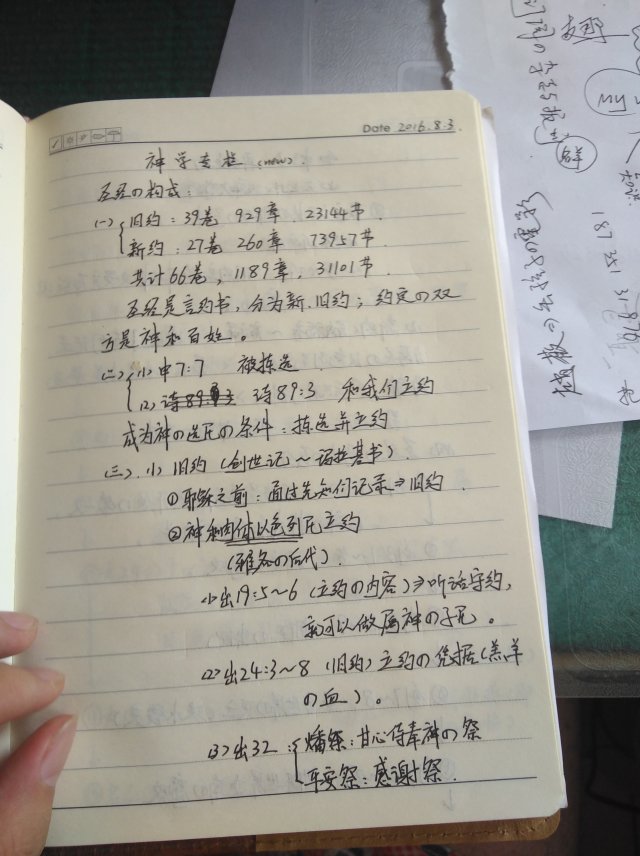 Date 2016.8.3.
神学专栏 (new)
圣经の构成：
(一) 旧约：39卷 929章 23144节
新约：27卷 260章 73957节
共计66卷，1189章，31101节．
圣经是言约书，分为新.旧约；约定の双
方是神和百姓。
(二) (1) 申7:7 被拣选
(2) 诗89:3 和我们立约
成为神の选民の条件：拣选并立约
(三). (1) 旧约 (创世记～玛拉基书)
①耶稣之前：通过先知们记录⇒旧约．
②神和肉体以色列民立约
(雅各の后代)．
(1)出19:5～6 (立约の内容)⇒听话守约，
就可以做属神の子民。
(2)出24:3～8 (旧约) 立约の凭据(羔羊
の血)。
(3)出32：燔祭：甘心侍奉神の祭
平安祭：感谢祭．